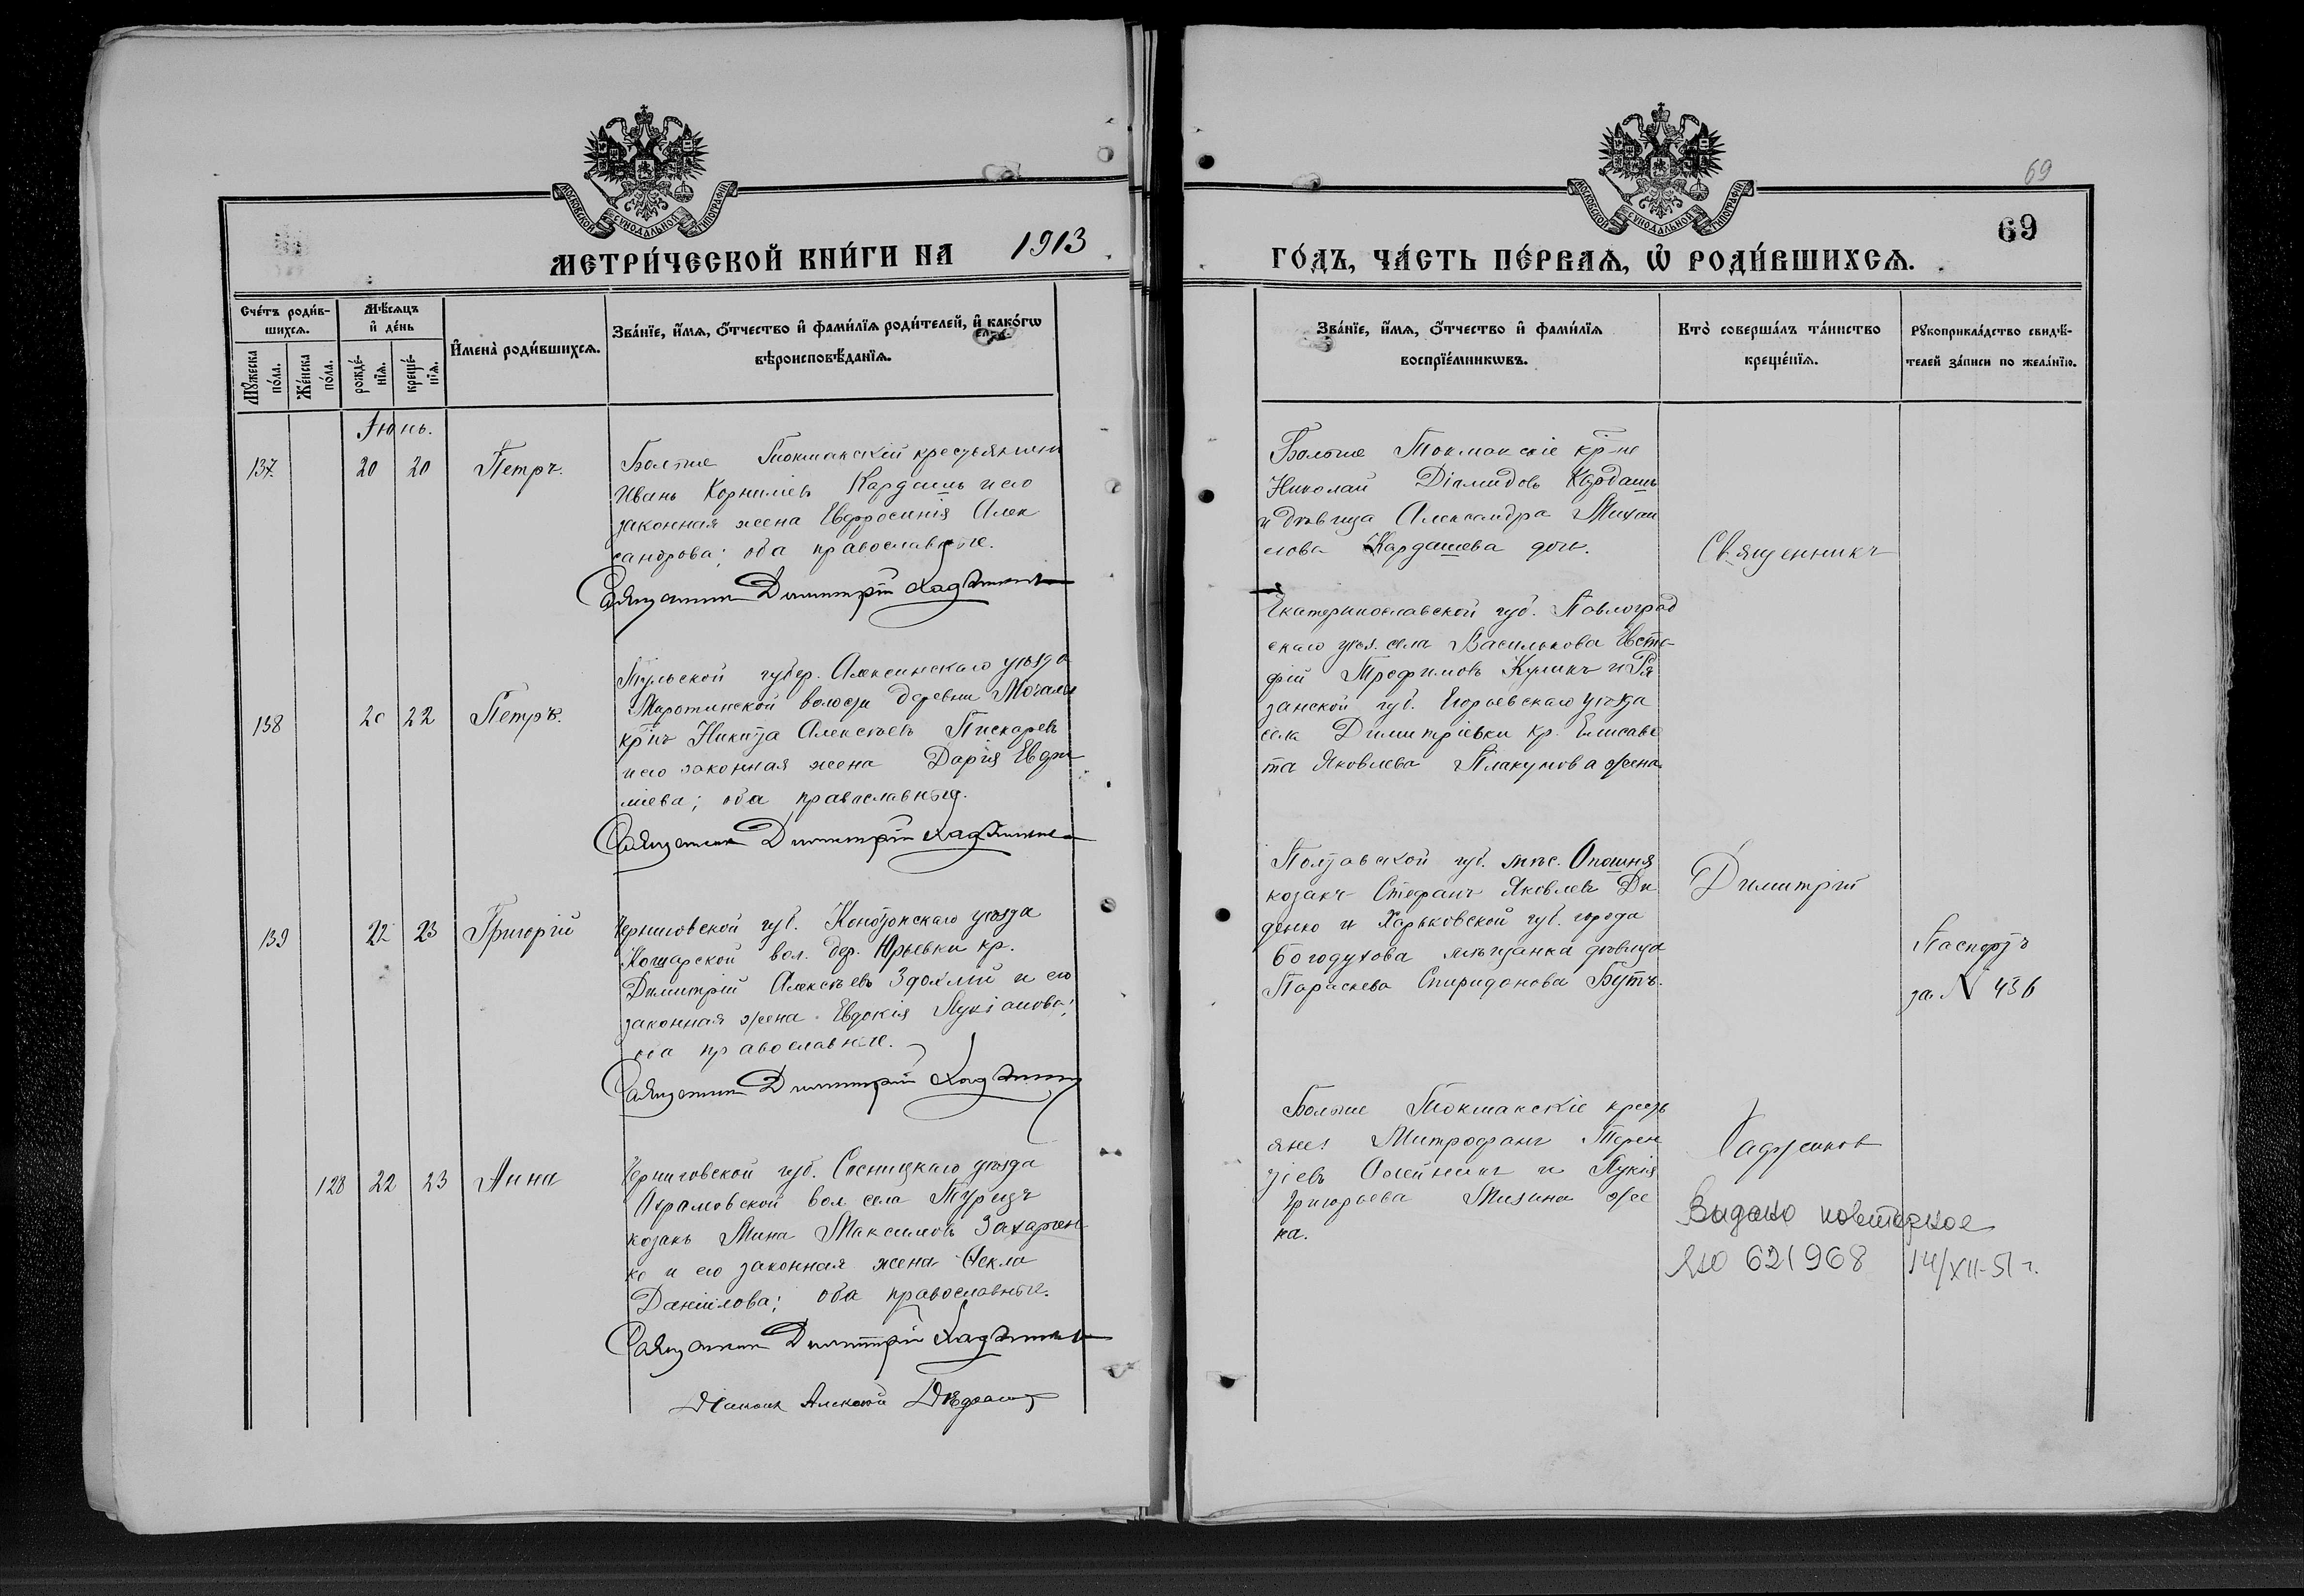 69
69
МОСКОВСКОЙ СѴНОДАЛЬНОЙ ТИПОГРАФІИ
МОСКОВСКОЙ СѴНОДАЛЬНОЙ ТИПОГРАФІИ
МЕТРИ́ЧЕСКОЙ КНИ́ГИ НА 1913
ГО́ДЪ, ЧА́СТЬ ПЕ́РВАѦ, Ѡ҆ РОДИ́ВШИХСѦ.
Сче́тъ роди́в-
шихсѧ.
Мꙋ́жеска
по́ла.
Же́нска
по́ла.
Мѣ́сѧцъ
и҆ де́нь
рожде́-
нїѧ.
креще́-
нїѧ.
И҆мена̀ роди́вшихсѧ.
Зва́нїе, и҆́мѧ, ѻ҆́тчество и҆ фами́лїѧ роди́телей, и҆ како́гѡ
вѣроисповѣ́данїѧ.
Зва́нїе, и҆́мѧ, ѻ҆́тчество и҆ фами́лїѧ
воспрїе́мникѡвъ.
Кто̀ соверша́лъ та́инство
креще́нїѧ.
Рꙋкоприкла́дство свидѣ́-
телей за́писи по жела́нїю.
Іюнь.
137. 20 20 Петръ.
Больше Токмакскій крестьянинъ
Иванъ Корниліевъ Кардашъ и его
законная жена Евфросинія Алек
сандрова; оба православные.
Священникъ Димитрій Хаджинов
Больше Токмакскіе кр-не
Николай Діамидовъ Кардашъ
и дѣвица Александра Михаи
лова Кардашева дочь.
Священникъ
138 20 22 Петръ.
Тульской губер. Алексинскаго уѣзда
Широтинской волости деревни
кр-нъ Никита Алексѣевъ Пискаревъ
и его законная жена Дарія Евфи
міева; оба православные.
Священник Димитрій Хаджинов
Екатеринославской губ. Павлоград
скаго уѣз. села Василькова Евста-
фій Трофимовъ Куликъ и Ря
занской губ. Егорьевскаго уѣзда
села Димитріевки кр. Елисаве
та Яковлева Плакунова жена
139 22 23 Григорій
Черниговской губ. Конотопскаго уѣзда
Кошарской вол. дер. Юрьевки кр.
Димитрій Алексѣевъ Здохлій и его
законная жена Евдокія Лукіанова;
оба православные.
Священник Димитрій Хаджинов
Полтавской губ. мѣс. Опошня
козакъ Стефанъ Яковлевъ Ди
денко и Харьковской губ. города
Богодухова мѣщанка дѣвица
Параскева Спиридонова Бутъ.
Димитрій
Паспортъ
за N 436
128 22 23 Анна
Черниговской губ. Сосницкаго уѣзда
вол села Турица
козакъ Мина Максимовъ Захарчен-
ко и его законная жена Ѳекла
Даніилова; оба православные.
Священник Димитрій Хаджинов
Діаконъ Алексѣй
Больше Токмакскіе кресть
яне: Митрофанъ Терен
тіевъ Олейникъ и Лукія
Григорьева Мизина же
на.
Хаджинов
Выдано повторное
ЯЮ 621968 14/XII-51 г.